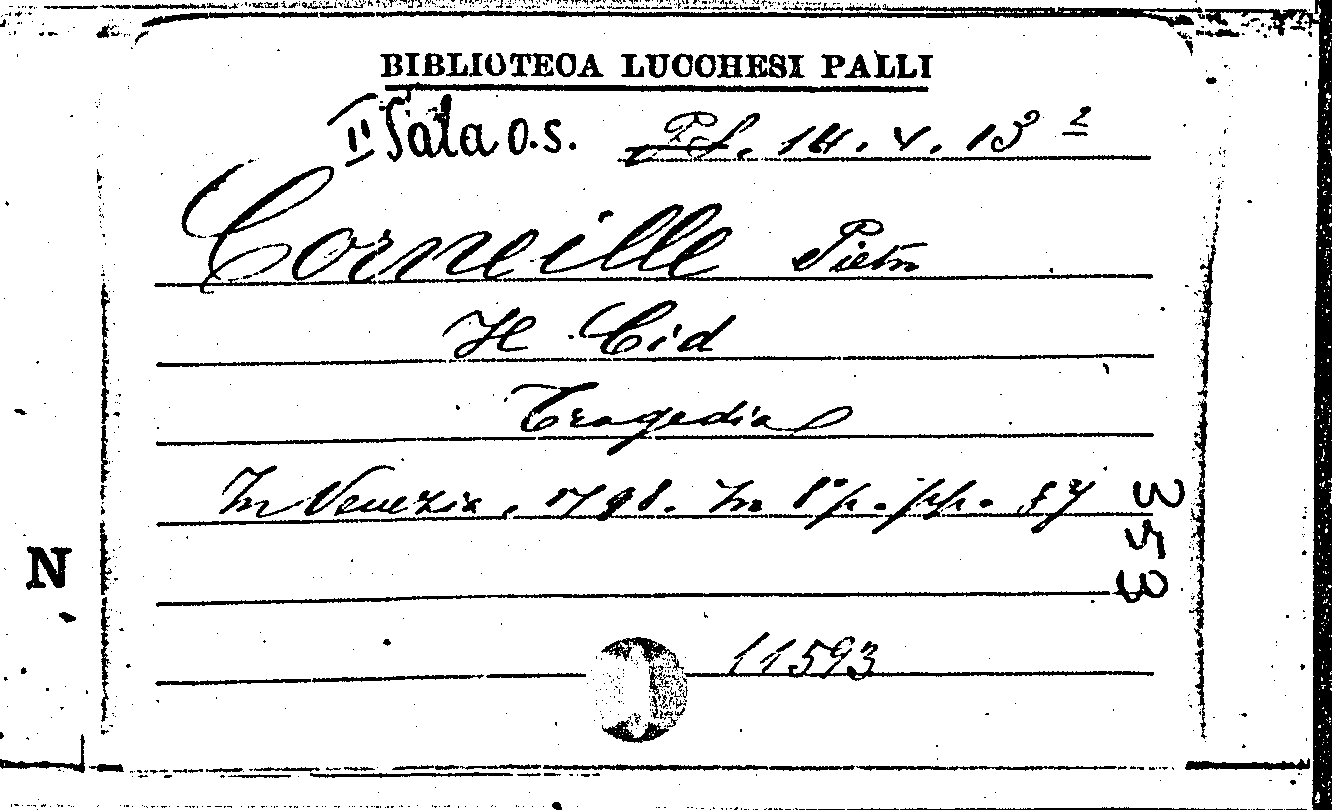 BIBLIOTECA LUCCHESI PALLI
II Sala O.S. 14. V. 13 2
Corneille Pietro
Il Cid
Tragedia
In Venezia, 1798. In 8° p. pp. 87
353
N
11593